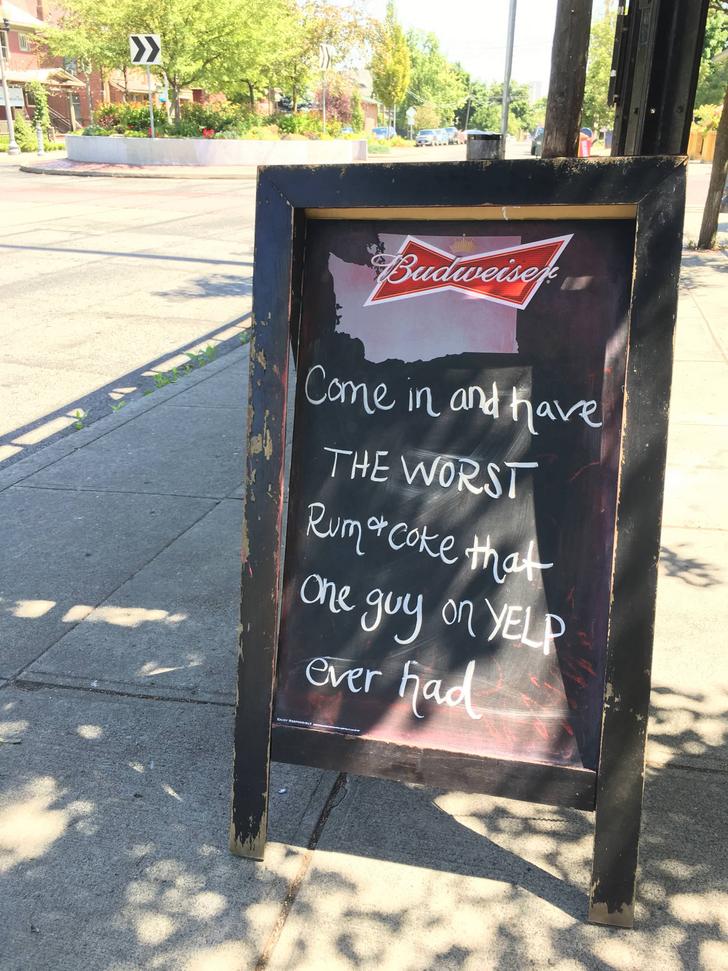 Budweiser
Come in and have
THE WORST
Rum & Coke that
One guy on YELP
ever had
ENJOY RESPONSIBLY